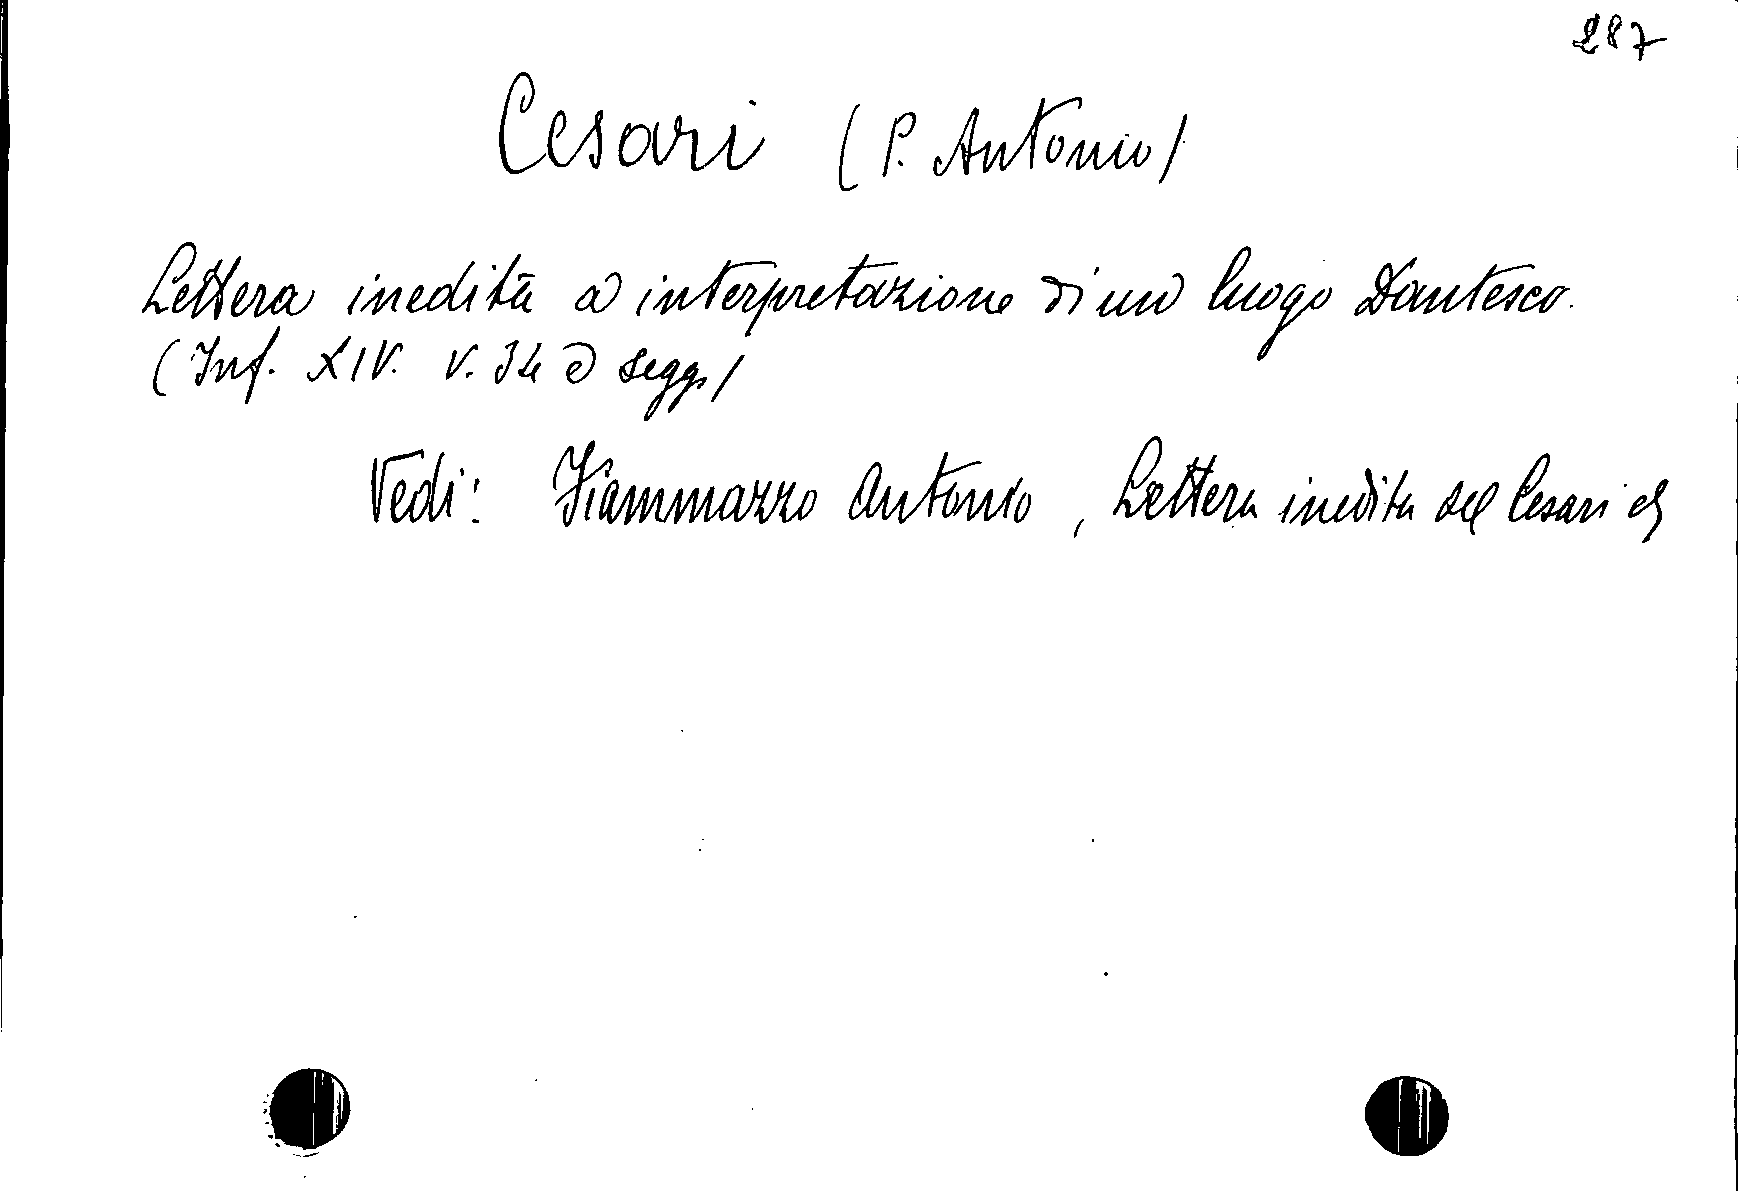 287
Cesari (P. Antonio)
Lettera inedita a interpretazione di un luogo Dantesco.
(Inf. XIV. v. 34 e segg.)
Vedi: Fiammazzo Antonio, Lettera inedita del Cesari